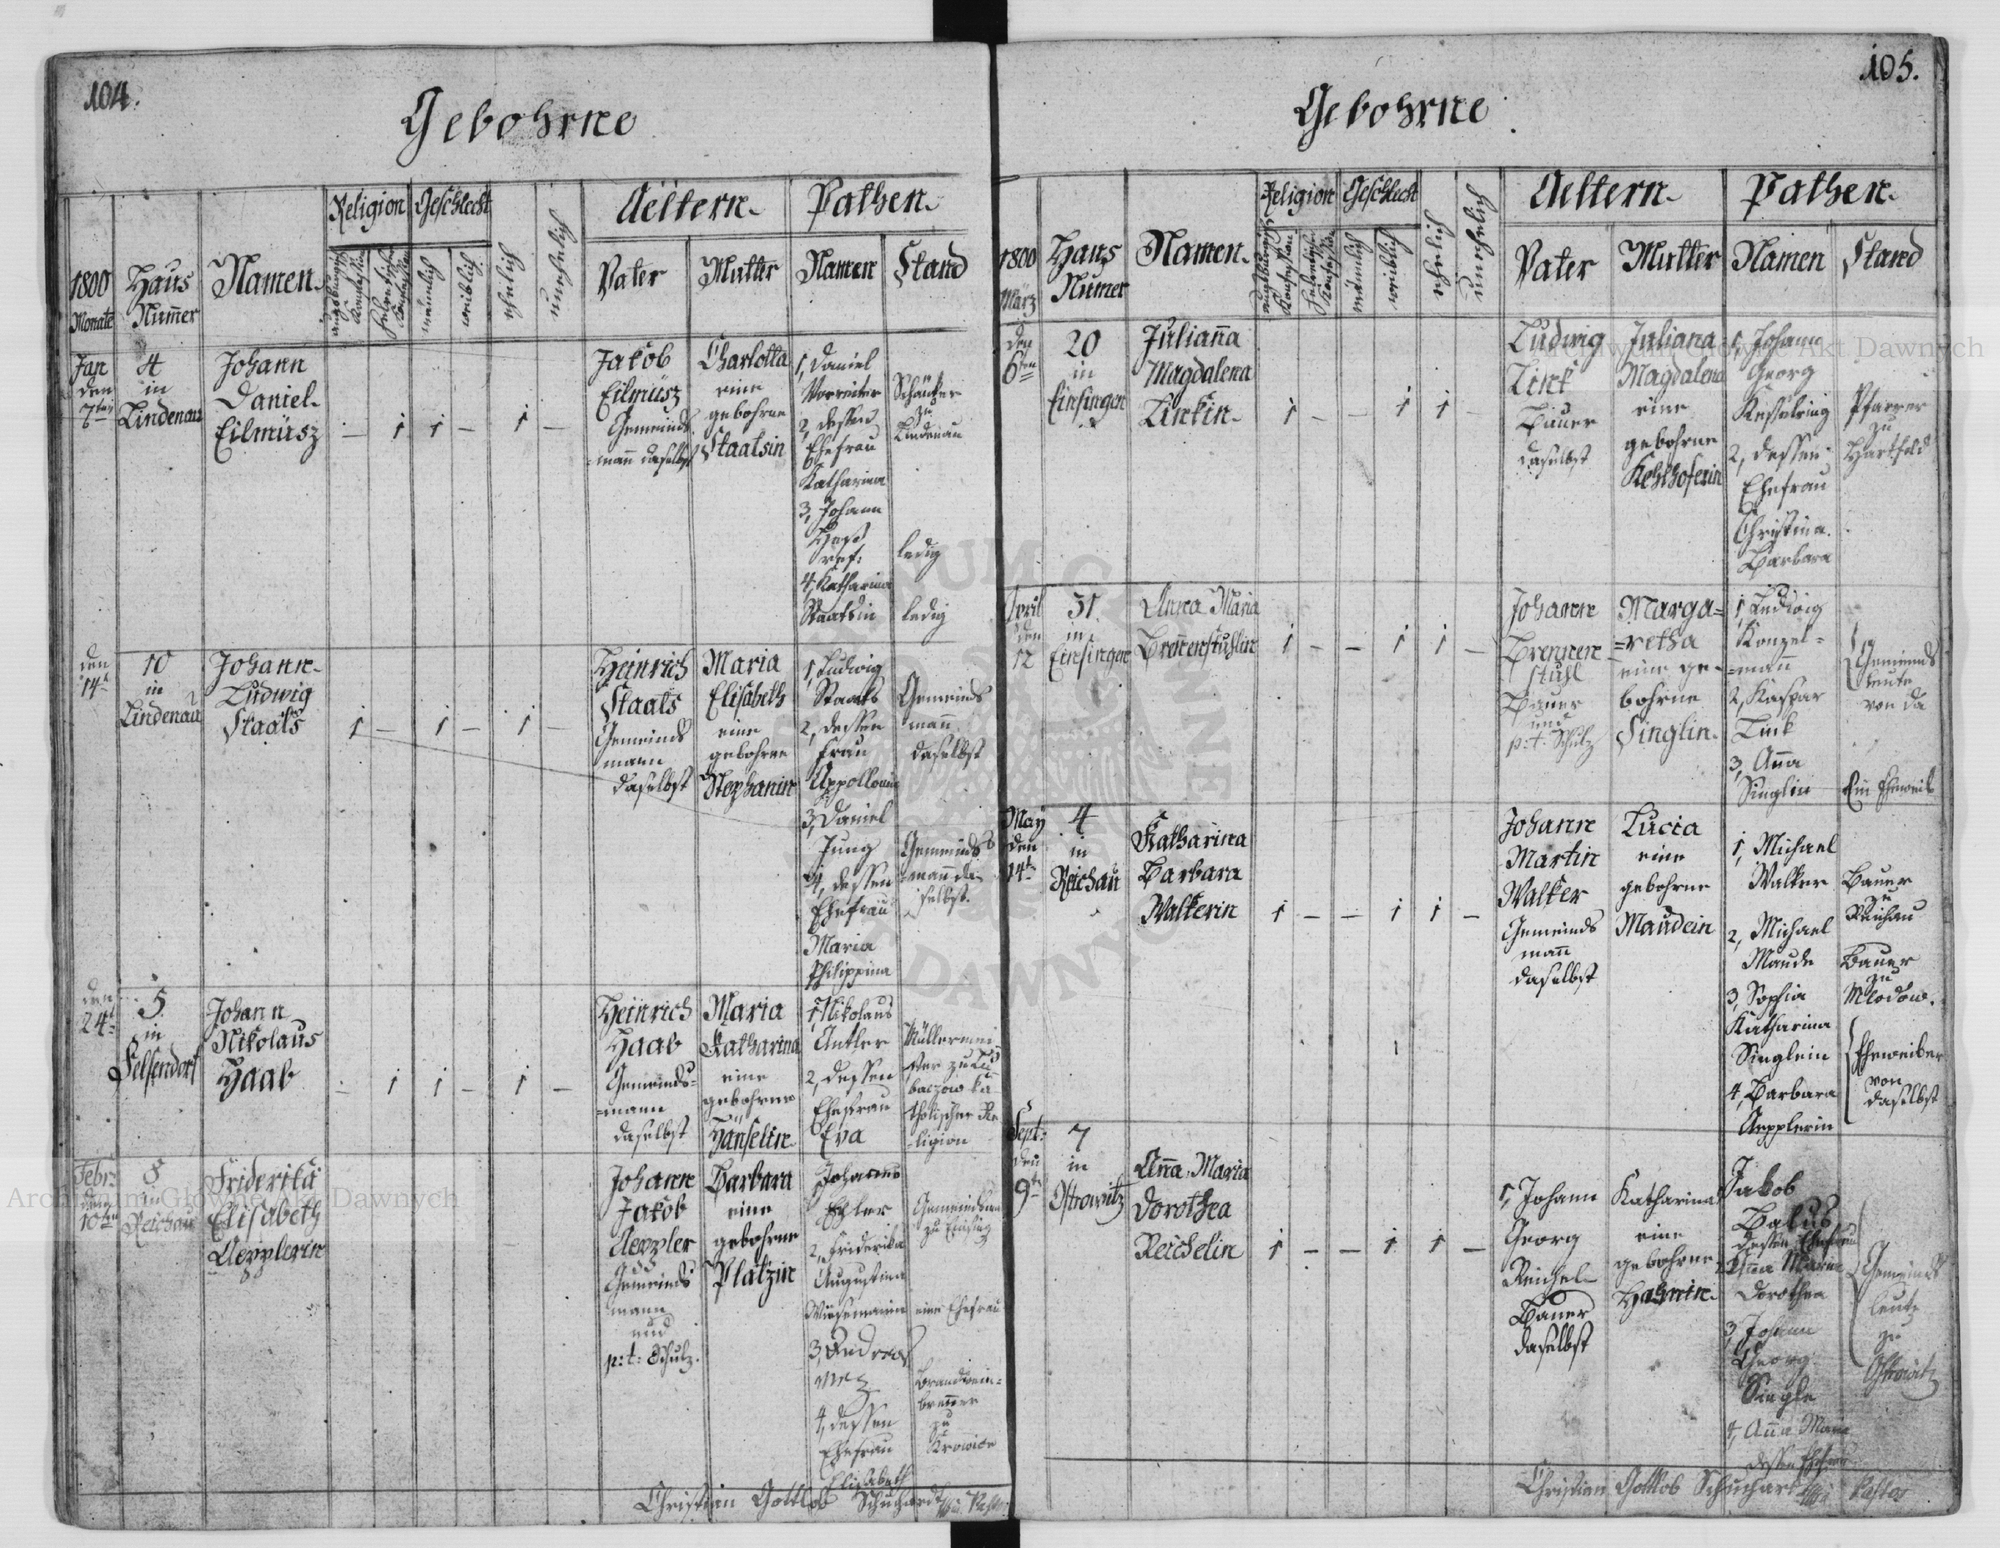 104.
Gebohrne
1800
Monate
Haus
Nummer
Namen
Religion
Geschlecht
männlich
weiblich
ehelich
unehelich
Aeltern
Vater
Mutter
Pathen
Namen
Stand
Jan
den
7ten
4
in
Lindenau
Johann
Daniel
Eilmüsz
— 1 1 — 1 —
Jakob
Eilmüsz
Gemeinds
mann daselbst
Charlotta
eine
gebohrne
Staatsin
1, Daniel
Vorreiter
2, dessen
Ehefrau
Katharina
3, Johann
ref:
4, Katharina
Staatsin
Schänker
zu
Lindenau
ledig
ledig
den
14t
10
in
Lindenau
Johann
Ludwig
Staals
1 — 1 — 1 —
Heinrich
Staals
Gemeinds
mann
daselbst
Maria
Elisabeth
eine
gebohrne
Stephanin
1, Ludwig
Staals
2, dessen
Frau
Appollonia
3, Daniel
Jung
4, dessen
Ehefrau
Maria
Philippina
Gemeinds
mann
daselbst
Gemeinds
mann da
selbst.
den
24t
5
in
Felsendorf
Johann
Nikolaus
Haab
— 1 1 — 1 —
Heinrich
Haab
Gemeinds=
=mann
daselbst
Maria
Katharina
eine
gebohrne
Hänselin
1, Nikolaus
Antler
2, dessen
Ehefrau
Eva
Müllermei
ster zu Lu
baczow ka
tholischer Re
ligion
Febr:
den
10ten
8
in
Reichau
Friderika
Elisabeth
Aepplerin
Johann
Jakob
Aeppler
Gemeinds
mann
und
p:t: Schulz.
Barbara
eine
gebohrne
Platzin
Johannes
2, Friderika
Augustina
Wiesemann
3, Andreas
Mez
4, dessen
Ehefrau
Elisabeth
eine Ehefrau
Brandwein=
brenner
zu
Krowice
Christian Gottlob Schuchard Pastor
105.
Gebohrne
1800
März
Haus
Numer
Namen
Religion
Geschlecht
männlich
weiblich
ehelich
unehelich
Aeltern
Vater
Mutter
Pathen
Namen
Stand
den
6ten
20
in
Einsingen
Julianna
Magdalena
Linkin
1 — — 1 1 —
Ludwig
Link
Bauer
daselbst
Juliana
Magdalena
eine
gebohrne
Kehlhoferin
1, Johann
Georg
Kesselring
2, dessen
Ehefrau
Christina
Barbara
Pfarrer
zu
Hartfeld
April
den
12
31
in
Einsingen
Anna Maria
Brennenstuhlin
1 — — 1 1 —
Johann
Brennen
stuhl
Bauer
und
p:t: Schulz
Marga=
=retha
eine ge=
bohrne
Singlin
1, Ludwig
Konzel=
=mann
2, Kaspar
Link
3, Anna
Singlin
Gemeinds
leute
von da
Ein Eheweib
May
den
14t
4
in
Reichau
Katharina
Barbara
Walkerin
1 — — 1 1 —
Johann
Martin
Walker
Gemeinds
mann
daselbst
Lucia
eine
gebohrne
Maudein
1, Michael
Walker
2, Michael
Maude
3, Sophia
Katharina
Singlein
4, Barbara
Aepplerin
Bauer
zu
Reichau
Bauer
zu
Mlodow.
Eheweiber
von
daselbst
Sept:
den
9t
7
in
Ostrowitz
Anna Maria
Dorothea
Reichelin
1 — — 1 1 —
1, Johann
Georg
Reichel
Bauer
daselbst
Katharina
eine
gebohrne
Hahnin
Jakob
Balus
dessen Ehefrau
Anna Maria
Dorothea
3, Johann
Georg
Single
4, Anna Maria
dessen Ehefrau
Gemeinds
leute
zu
Ostrowitz
Christian Gottlob Schuchard Pastor
Archiwum Główne Akt Dawnych
Archiwum Główne Akt Dawnych